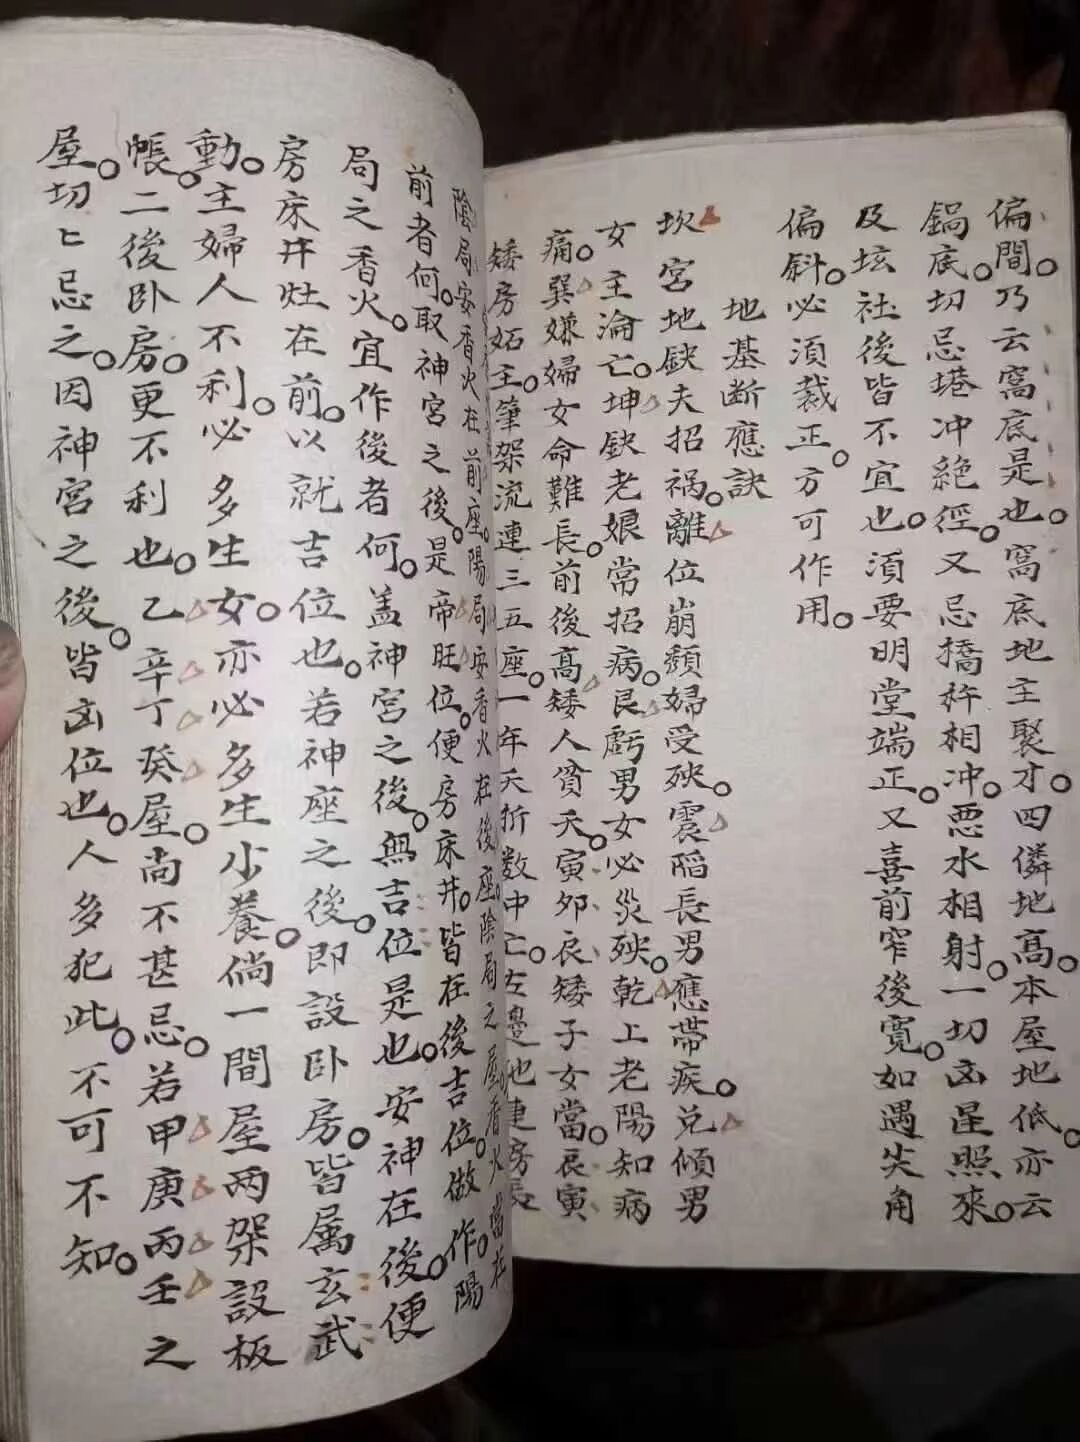 偏間乃云窩底是也窩底地主聚才四隣地高本屋地低亦云
鍋底切忌塔冲絕徑又忌橋杵相冲惡水相射一切凶星照來
及坛社後皆不宜也須要明堂端正又喜前窄後寬如遇尖角
偏斜必須裁正方可作用
地基断應訣
坎宮地缺夫招禍離位崩頹婦受殃震陷長男應帶疾兌傾男
女主淪亡坤缺老娘常招病艮虧男女必災殃乾上老陽知病
痛巽嫌婦女命難長前後高矮人貧夭寅夘艮矮子女當艮寅
矮房妬主筆架流連三五座一年夭折数中亡左邊地連房長
陰局安香火在前座陽局安香火在後座陰局之屋香火當在
前者何取神宮之後是帝旺位便房床井皆在後吉位做作陽
局之香火宜作後者何盖神宮之後無吉位是也安神在後便
房床井灶在前以就吉位也若神座之後即設卧房皆属玄武
動主婦人不利必多生女亦必多生少養倘一間屋两架設板
帳二後卧房更不利也乙辛丁癸屋尚不甚忌若甲庚丙壬之
屋切匕忌之因神宮之後皆凶位也人多犯此不可不知